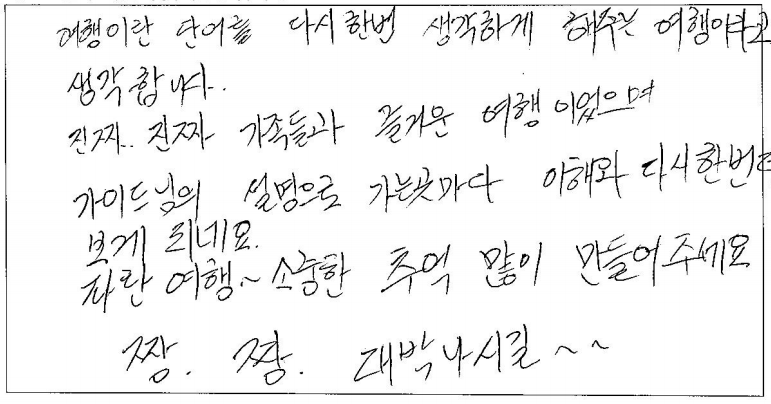 여행이란 단어를 다시 한번 생각하게 해주는 여행이라고
생각합니다.
진짜.. 진짜 가족들과 즐거운 여행이었으며
가이드님의 설명으로 가는곳마다 이해와 다시한번더
보게 되네요.
파란 여행~ 소중한 추억 많이 만들어주세요
짱. 짱. 대박나시길 ~ ~